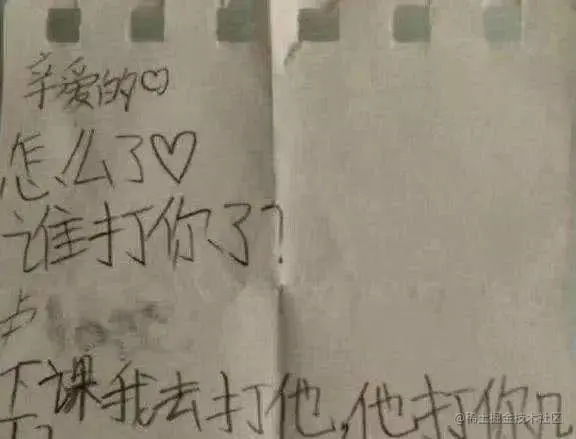 亲爱的♡
怎么了♡
谁打你了？
卢
下课我去打他，他打你
@稀土掘金技术社区